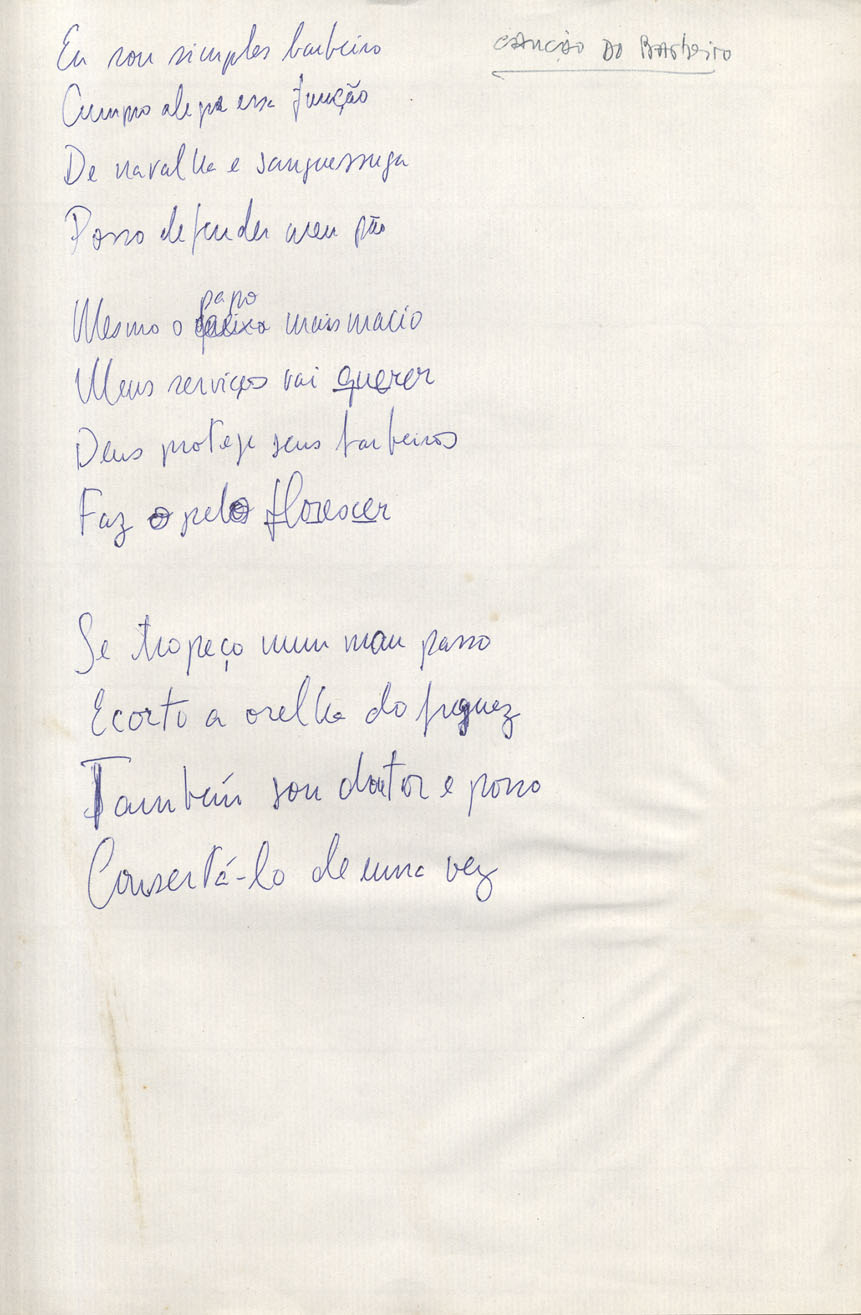 CANÇÃO DO BARbeiro
Eu sou simples barbeiro
Cumpro alegre essa função
De navalha e sanguessuga
Posso defender meu pão
Mesmo o papo mais macio
Meus serviços vai querer
Deus protege seus barbeiros
Faz o pelo florescer
Se tropeço num mau passo
E corto a orelha do freguez
Também sou doutor e posso
Consertá-lo de uma vez